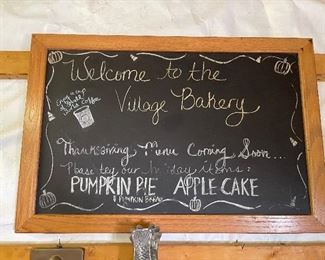 Welcome to the
Village Bakery
Enjoy a cup
of
coffee
Thanksgiving Menu Coming Soon...
Please try our holiday items:
PUMPKIN PIE APPLE CAKE
& PUMPKIN